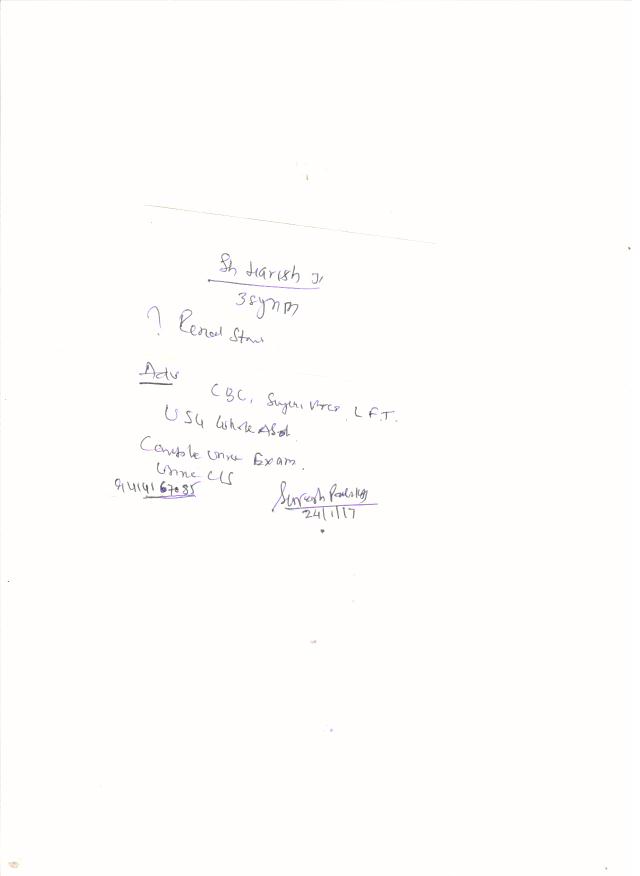 Sh Harish Ji
38y/M
? Renal Stone
Adv
CBC, Sugar, L.F.T.
USG Whole Abd
Complete Urine Exam.
Urine C/S
Suresh
24/1/17